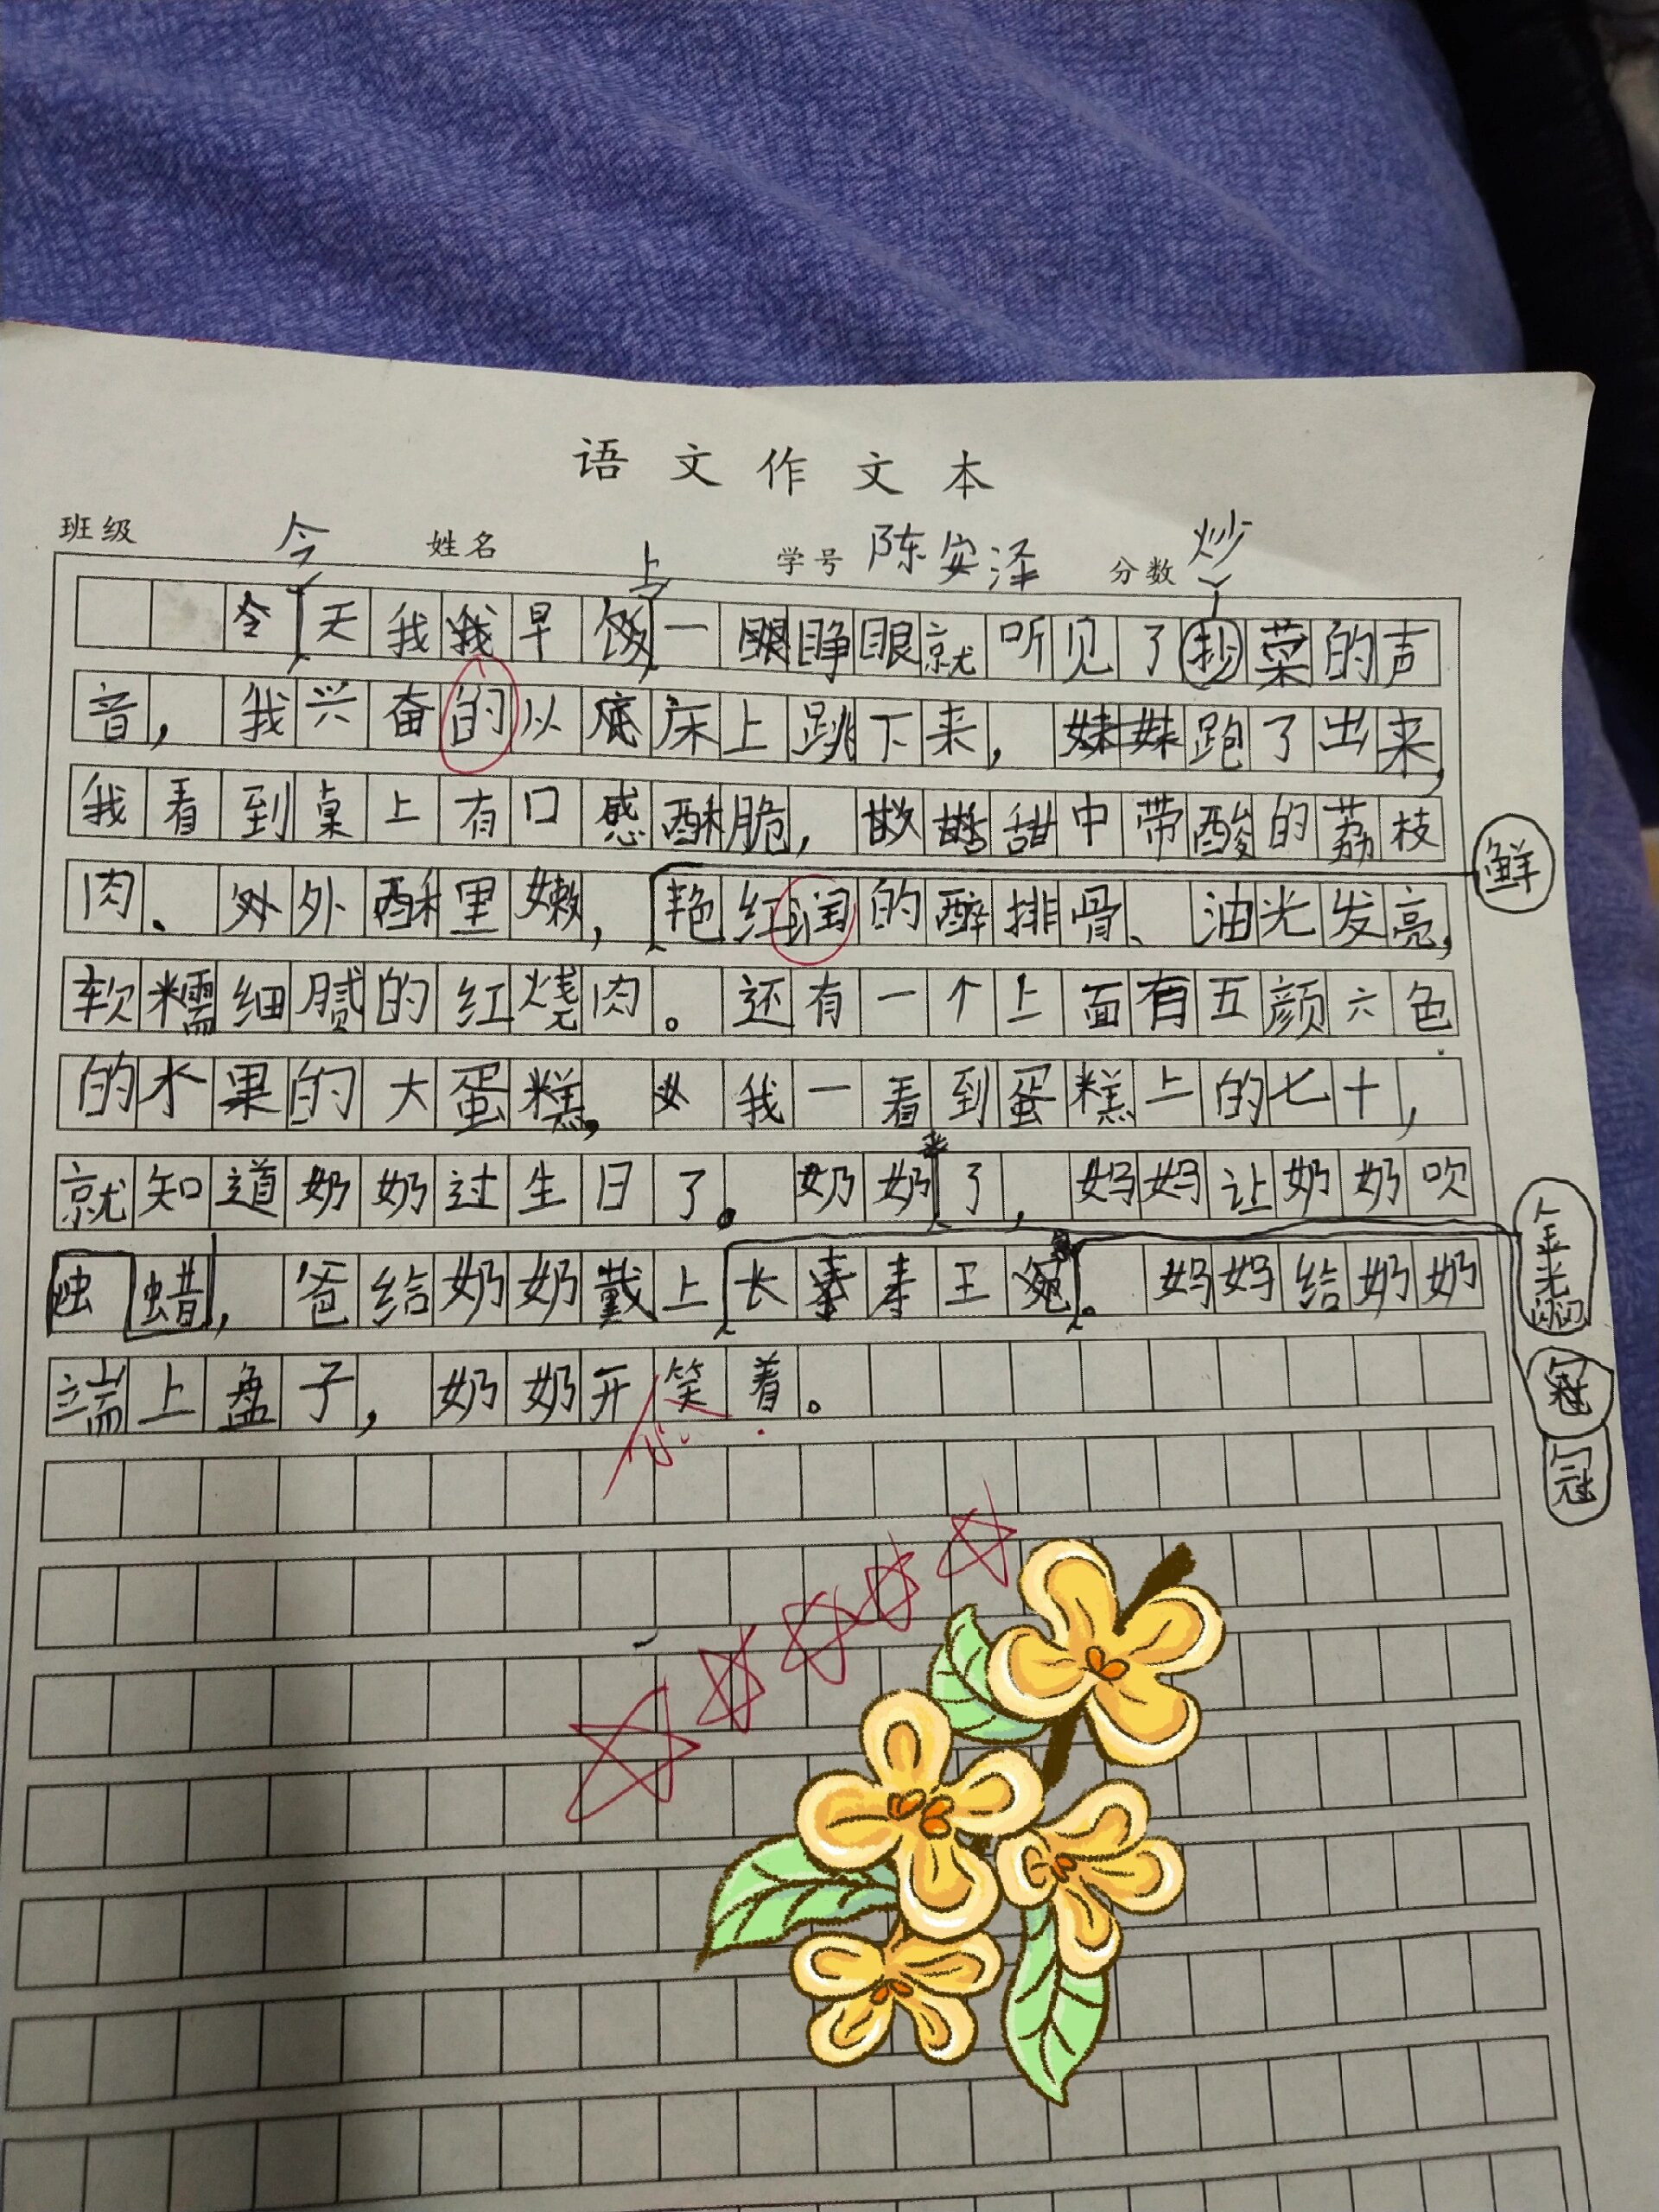 语文作文本
班级 今 姓名 上 学号 陈安泽 分数 炒
今天我我早饭一眼睁眼就听见了抄菜的声
音，我兴奋的从底床上跳下来，妹妹跑了出来，
我看到桌上有口感酥脆，甜中带酸的荔枝
肉、外外酥里嫩，艳红润的醉排骨、油光发亮，
鲜
软糯细腻的红烧肉。还有一个上面有五颜六色
的水果的大蛋糕，我一看到蛋糕上的七十，
就知道奶奶过生日了。奶奶了，妈妈让奶奶吹
金光闪闪
烛蜡，爸给奶奶戴上长寿寿王冠。妈妈给奶奶
冠
冠
端上盘子，奶奶开笑着。
心